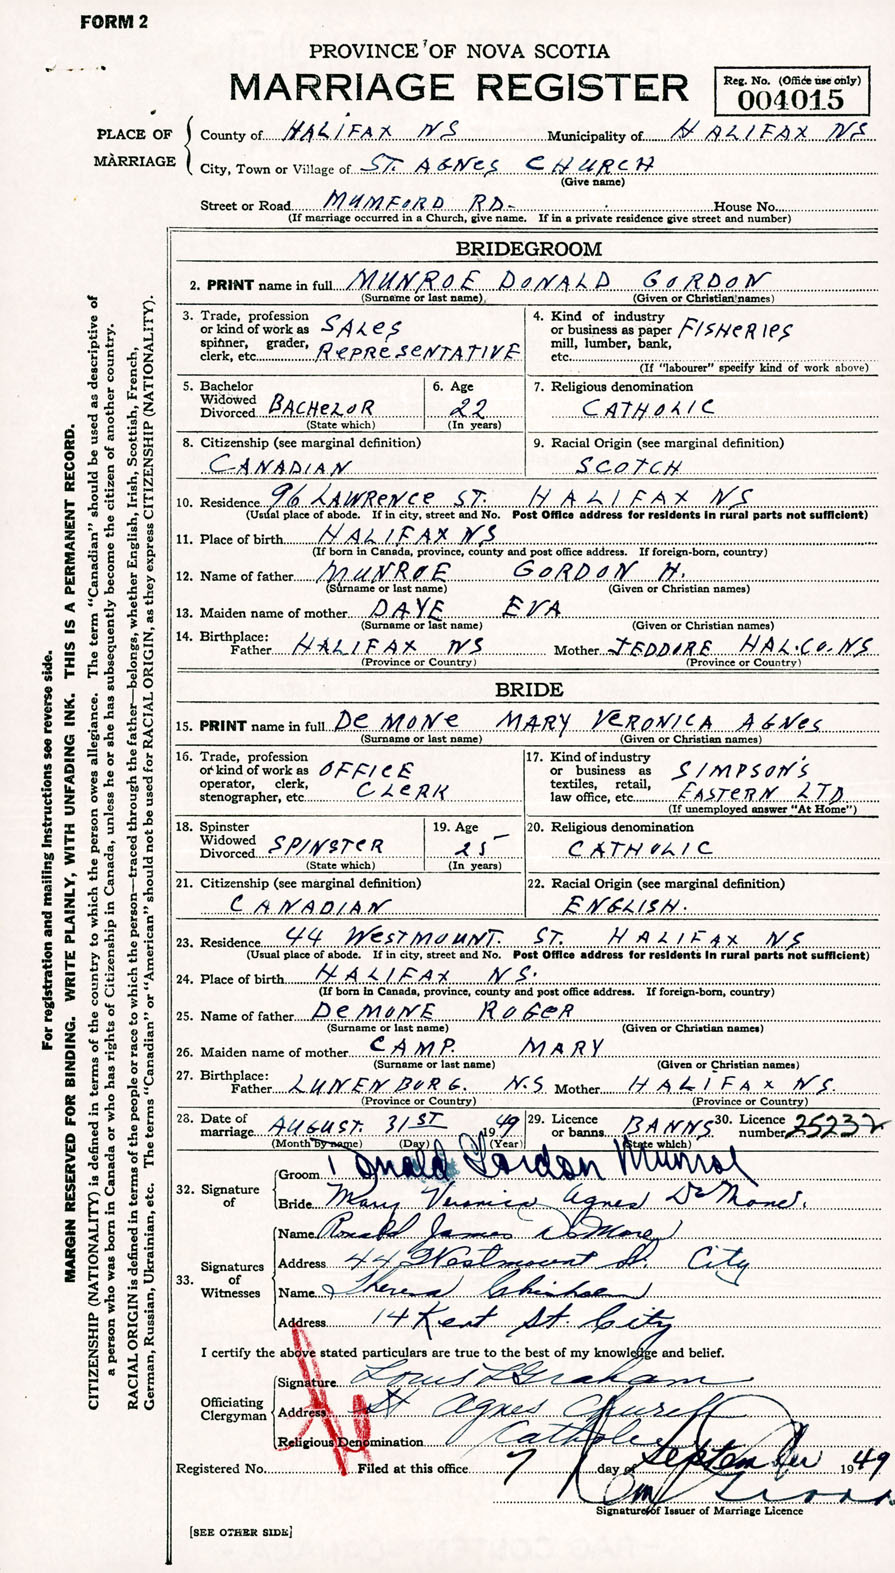 FORM 2
PROVINCE OF NOVA SCOTIA
MARRIAGE REGISTER
Reg. No. (Office use only)
004015
PLACE OF MARRIAGE
County of HALIFAX NS Municipality of HALIFAX NS
City, Town or Village of ST. AGNES CHURCH
(Give name)
Street or Road MUMFORD RD- House No.
(If marriage occurred in a Church, give name. If in a private residence give street and number)
BRIDEGROOM
2. PRINT name in full MUNROE DONALD GORDON
(Surname or last name) (Given or Christian names)
3. Trade, profession or kind of work as spinner, grader, clerk, etc. SALES REPRESENTATIVE
4. Kind of industry or business as paper mill, lumber, bank, etc. FISHERIES
(If "labourer" specify kind of work above)
5. Bachelor Widowed Divorced BACHELOR
(State which)
6. Age 22
(In years)
7. Religious denomination CATHOLIC
8. Citizenship (see marginal definition) CANADIAN
9. Racial Origin (see marginal definition) SCOTCH
10. Residence 96 LAWRENCE ST. HALIFAX NS
(Usual place of abode. If in city, street and No. Post Office address for residents in rural parts not sufficient)
11. Place of birth HALIFAX NS
(If born in Canada, province, county and post office address. If foreign-born, country)
12. Name of father MUNROE GORDON H.
(Surname or last name) (Given or Christian names)
13. Maiden name of mother DAYE EVA
(Surname or last name) (Given or Christian names)
14. Birthplace: Father HALIFAX NS Mother JEDDORE HAL.CO.NS
(Province or Country) (Province or Country)
BRIDE
15. PRINT name in full DeMONE MARY VERONICA AGNES
(Surname or last name) (Given or Christian names)
16. Trade, profession or kind of work as operator, clerk, stenographer, etc. OFFICE CLERK
17. Kind of industry or business as textiles, retail, law office, etc. SIMPSON'S EASTERN LTD
(If unemployed answer "At Home")
18. Spinster Widowed Divorced SPINSTER
(State which)
19. Age 25
(In years)
20. Religious denomination CATHOLIC
21. Citizenship (see marginal definition) CANADIAN
22. Racial Origin (see marginal definition) ENGLISH.
23. Residence 44 WESTMOUNT. ST. HALIFAX NS
(Usual place of abode. If in city, street and No. Post Office address for residents in rural parts not sufficient)
24. Place of birth HALIFAX NS.
(If born in Canada, province, county and post office address. If foreign-born, country)
25. Name of father DeMONE ROGER
(Surname or last name) (Given or Christian names)
26. Maiden name of mother CAMP. MARY
(Surname or last name) (Given or Christian names)
27. Birthplace: Father LUNENBURG. N.S Mother HALIFAX NS.
(Province or Country) (Province or Country)
28. Date of marriage AUGUST. 31ST 1949
(Month by name) (Day) (Year)
29. Licence or banns BANNS
(State which)
30. Licence number 25232
32. Signature of
Groom Donald Gordon Munroe
Bride Mary Veronica Agnes DeMone.
33. Signatures of Witnesses
Name Ronald James DeMone
Address 44 Westmount St. City
Name Theresa Chisholm
Address 14 Kent St. City
I certify the above stated particulars are true to the best of my knowledge and belief.
Officiating Clergyman
Signature Louis L Graham
Address St Agnes Church
Religious Denomination Catholic
Registered No. Filed at this office 7 day of September 1949
Signature of Issuer of Marriage Licence
[SEE OTHER SIDE]
For registration and mailing instructions see reverse side.
MARGIN RESERVED FOR BINDING. WRITE PLAINLY, WITH UNFADING INK. THIS IS A PERMANENT RECORD.
CITIZENSHIP (NATIONALITY) is defined in terms of the country to which the person owes allegiance. The term "Canadian" should be used as descriptive of
a person who was born in Canada or who has rights of Citizenship in Canada, unless he or she has subsequently become the citizen of another country.
RACIAL ORIGIN is defined in terms of the people or race to which the person—traced through the father—belongs, whether English, Irish, Scottish, French,
German, Russian, Ukrainian, etc. The terms "Canadian" or "American" should not be used for RACIAL ORIGIN, as they express CITIZENSHIP (NATIONALITY).